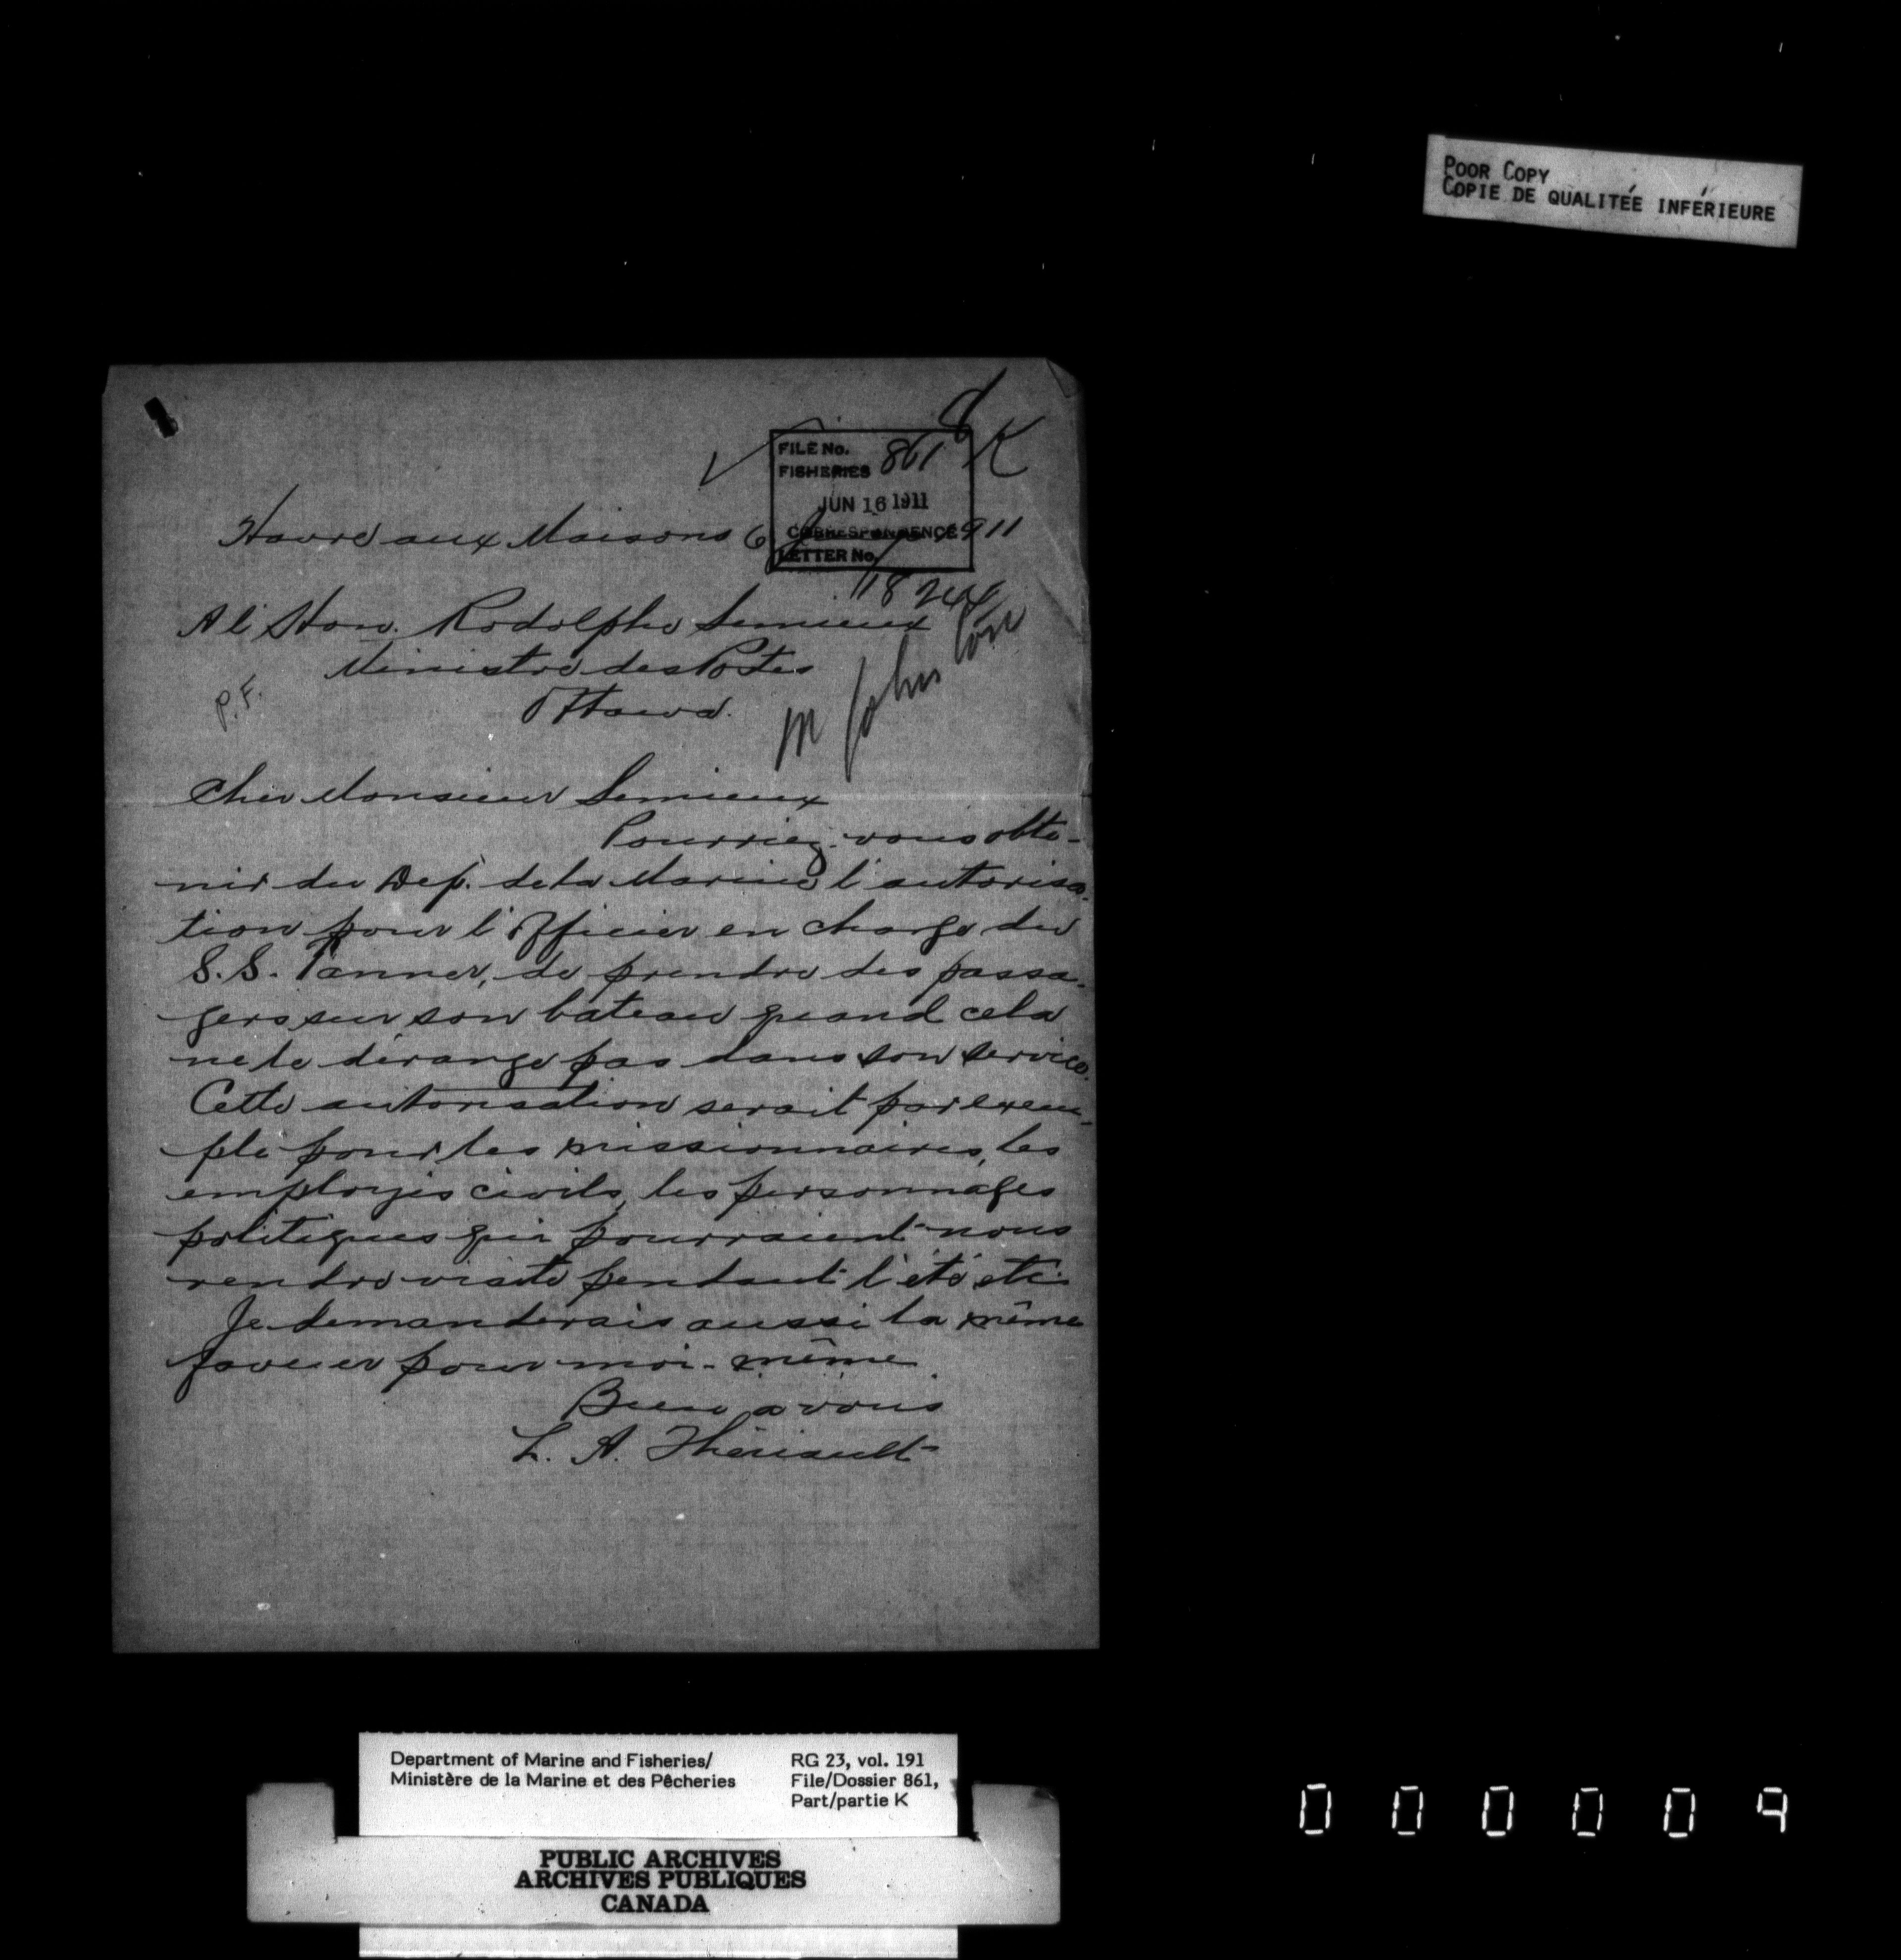 POOR COPY
COPIE DE QUALITÉE INFÉRIEURE
8
K
FILE No.
FISHERIES 861
JUN 16 1911
CORRESPONDENCE
LETTER No.
Havre aux Maisons 6 1911
118244
A l'Hon. Rodolphe Lemieux
Ministre des Postes
P.F.
Ottawa.
M Johnston
Cher Monsieur Lemieux
Pourriez-vous obte-
nir du Dep. de la Marine l'autorisa-
tion pour l'Officier en charge du
S.S. Tanner, de prendre des passa-
gers sur son bateau quand cela
ne le dérange pas dans son service.
Cette autorisation serait par exem-
ple pour les missionnaires, les
employés civils, les personnages
politiques qui pourraient nous
rendre visite pendant l'été etc.
Je demanderais aussi la même
faveur pour moi-même
Bien a vous
L. A. Thériault
Department of Marine and Fisheries/
Ministère de la Marine et des Pêcheries
RG 23, vol. 191
File/Dossier 861,
Part/partie K
PUBLIC ARCHIVES
ARCHIVES PUBLIQUES
CANADA
000009